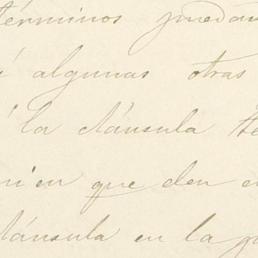 términos puedan
algunas otras
á la cláusula
que den
cláusula en la